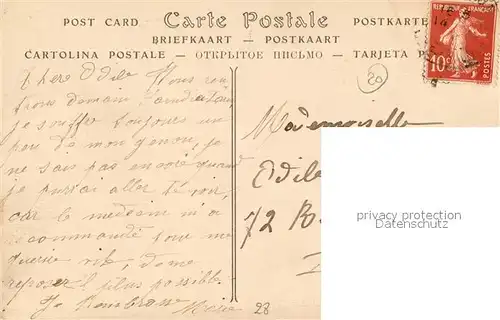 POST CARD Carte Postale POSTKARTE
BRIEFKAART — POSTKAART
CARTOLINA POSTALE — ОТКРЫТОЕ ПИСЬМО — TARJETA P
10c
POSTES
20
Chère Odile Nous ren
trons demain
je souffre toujours un
peu de mon genou, je
ne sais pas encore quand
je pourrai aller te voir,
car le médecin m'a
recommandé pour me
guérir vite, de me
reposer le plus possible.
Je t'embrasse
Mademoiselle
Odile
72 R
28
privacy protection
Datenschutz